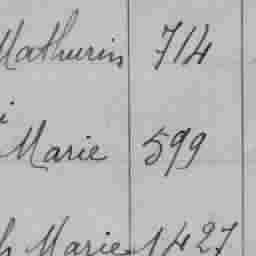 Mathurin 714
Marie 599
Marie 1427